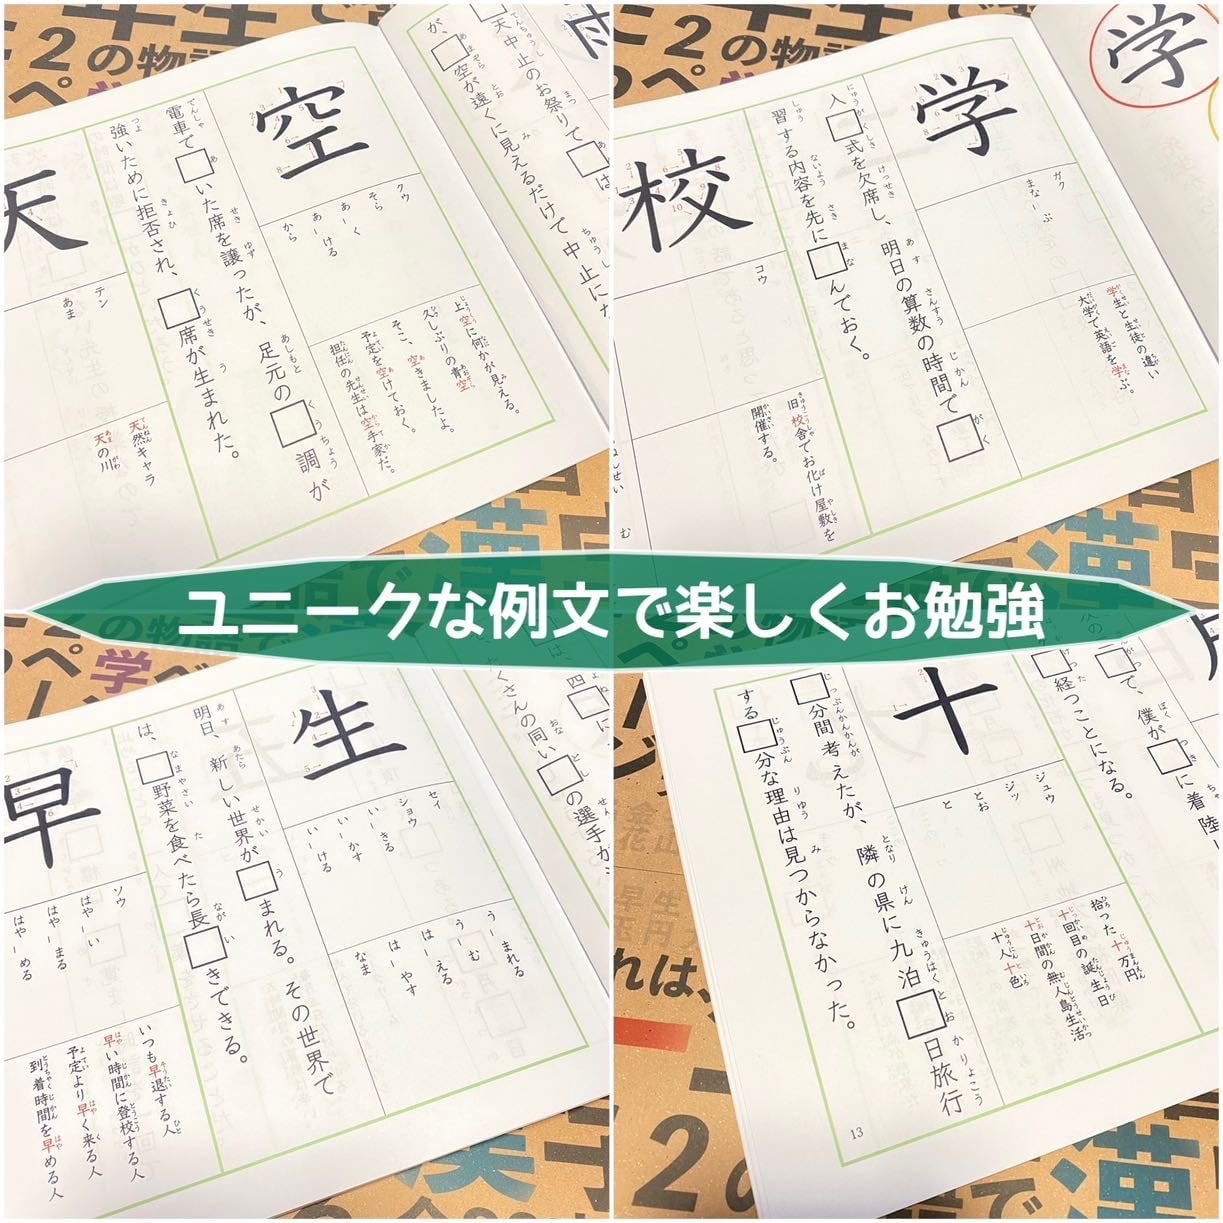 ユニークな例文で楽しくお勉強
天中止のお祭りで□は
が、□空が遠くに見えるだけで中止にな
空
クウ
そら
あーく
あーける
から
上空に何かが見える。
久しぶりの青空
そこ、空きましたよ。
予定を空けておく。
担任の先生は空手家だ。
電車で□いた席を譲ったが、足元の□調が
強いために拒否され、□席が生まれた。
天
テン
あま
天然キャラ
天の川
学
学
ガク
まなーぶ
学生と生徒の違い
大学で英語を学ぶ。
入□式を欠席し、明日の算数の時間で□
習する内容を先に□んでおく。
校
コウ
旧校舎でお化け屋敷を
開催する。
たくさんの同い□の選手が
生
セイ
ショウ
いーきる
いーかす
いーける
うーまれる
うーむ
はーえる
はーやす
なま
明日、新しい世界が□まれる。その世界で
は、□野菜を食べたら長□きできる。
早
ソウ
はやーい
はやーまる
はやーめる
いつも早退する人
早い時間に登校する人
予定より早く来る人
到着時間を早める人
□で、僕が□に着陸
□経つことになる。
十
ジュウ
ジッ
とお
と
拾った十万円
十回目の誕生日
十日間の無人島生活
十人十色
□分間考えたが、隣の県に九泊□日旅行
する□分な理由は見つからなかった。
13